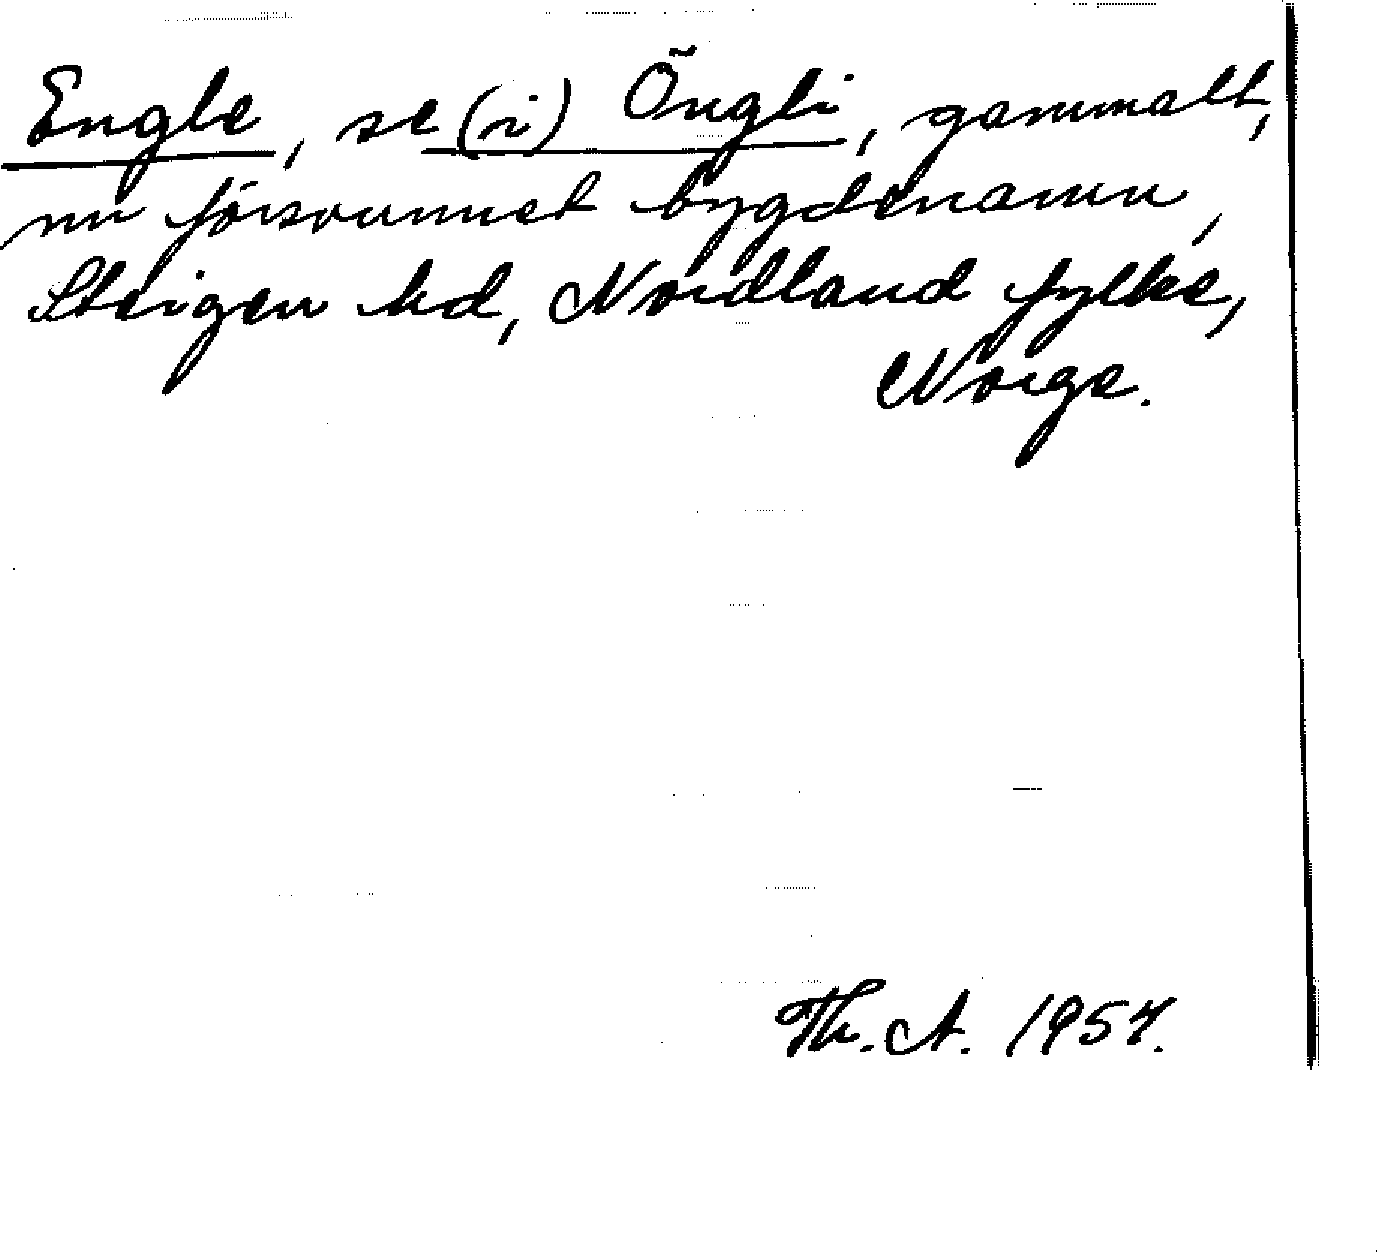 Engle, se (i) Õngli, gammalt,
nu försvunnet bygdenamn,
Steigen hd, Nordland fylke,
Norge.
Th. A. 1957.